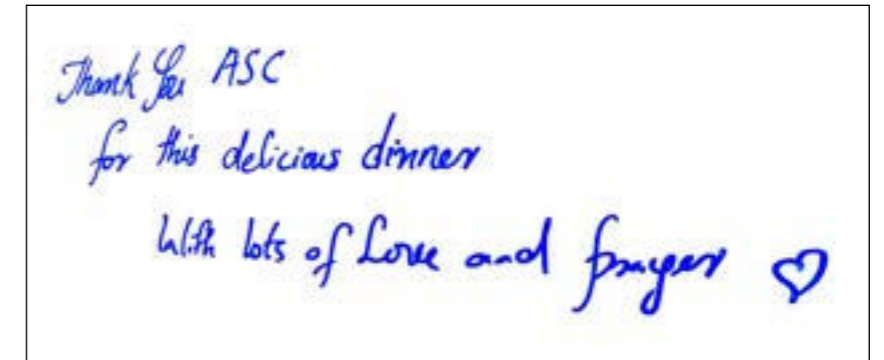 Thank You ASC
for this delicious dinner
With lots of Love and prayer ♡